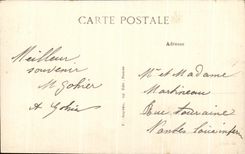 CARTE POSTALE
Adresse
Meilleur
souvenir
M Gohier
A Gohier
Mr et Madame
Martineau
Rue Touraine
Nantes Loire infre